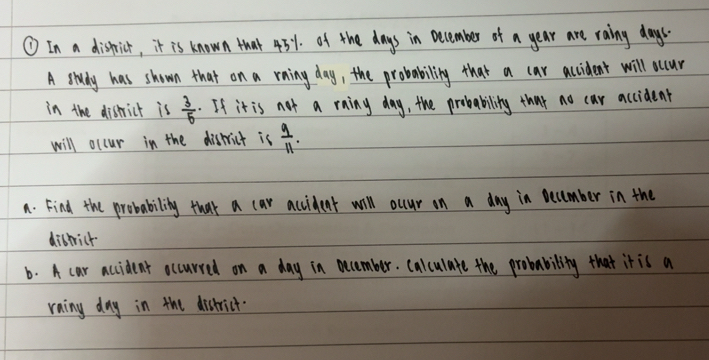 ① In a district, it is known that 45% of the days in December of a year are rainy days.
A study has shown that on a rainy day, the probability that a car accident will occur
in the district is 3/5. If it is not a rainy day, the probability that no car accident
will occur in the district is 9/11.
a. Find the probability that a car accident will occur on a day in December in the
district.
b. A car accident occurred on a day in December. Calculate the probability that it is a
rainy day in the district.